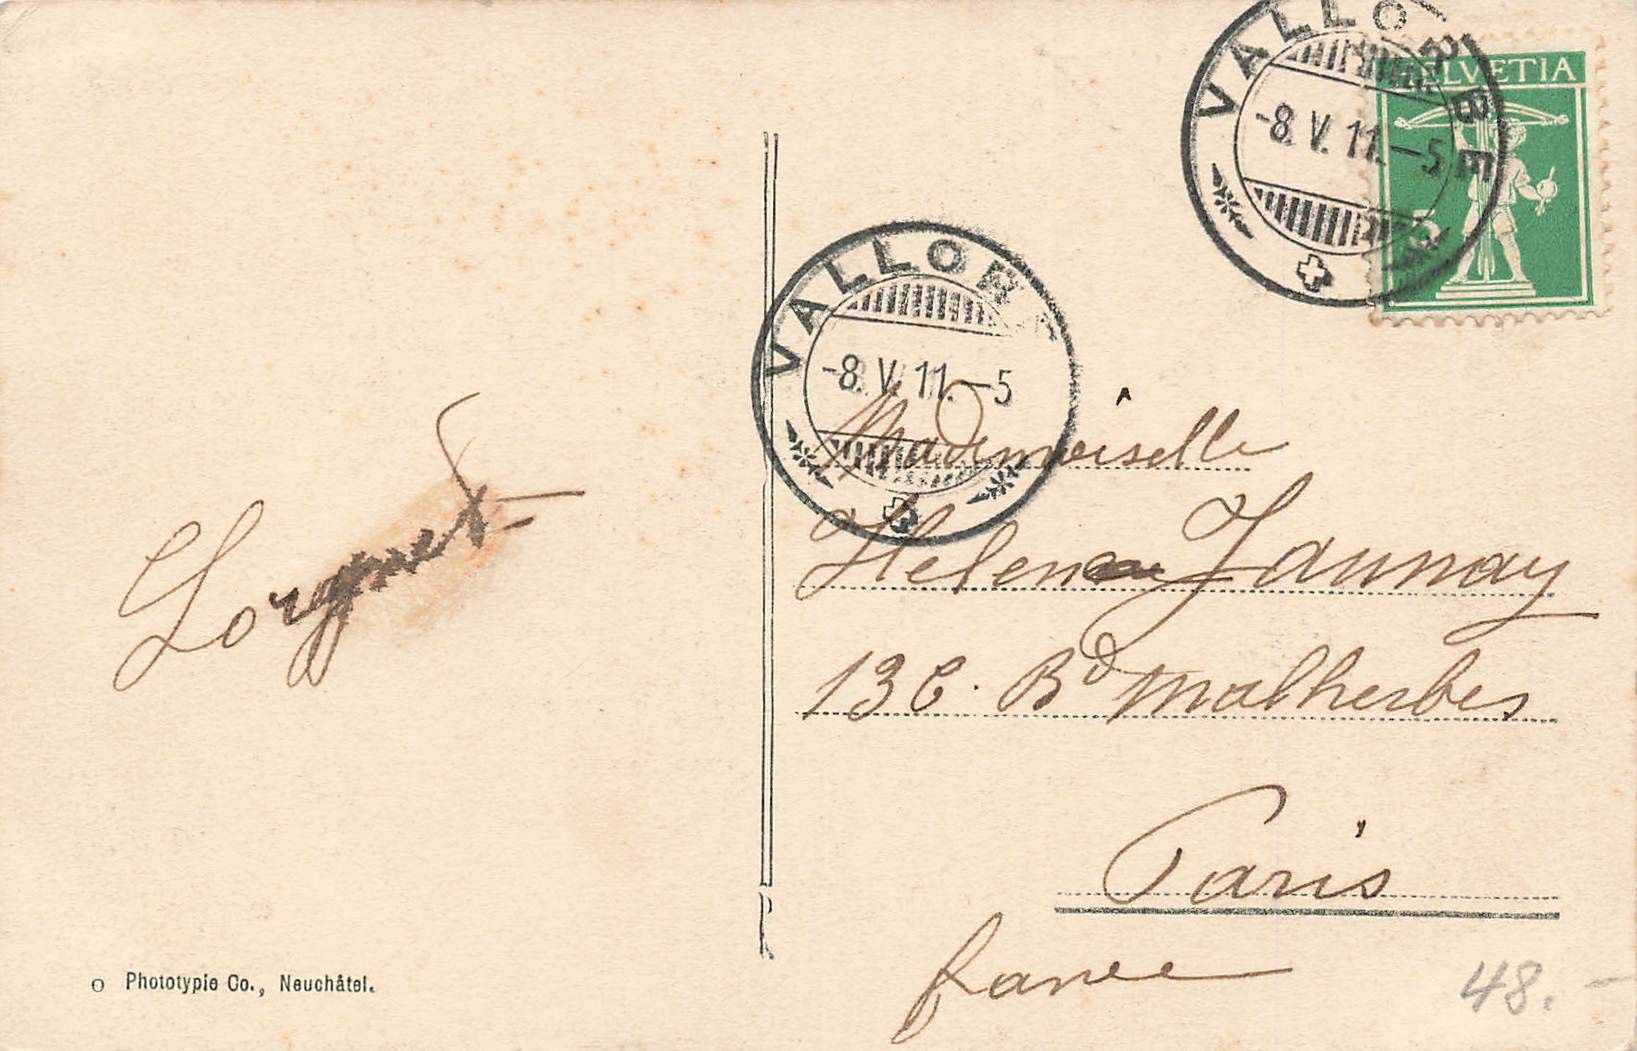 VALLORBE
-8.V.11.-5
HELVETIA
5
VALLOR
-8.V.11.-5
Mademoiselle
Helene Jaunay
13 C. Bd Malherbes
Paris
france
Lorgnet
Phototypie Co., Neuchâtel.
48.-